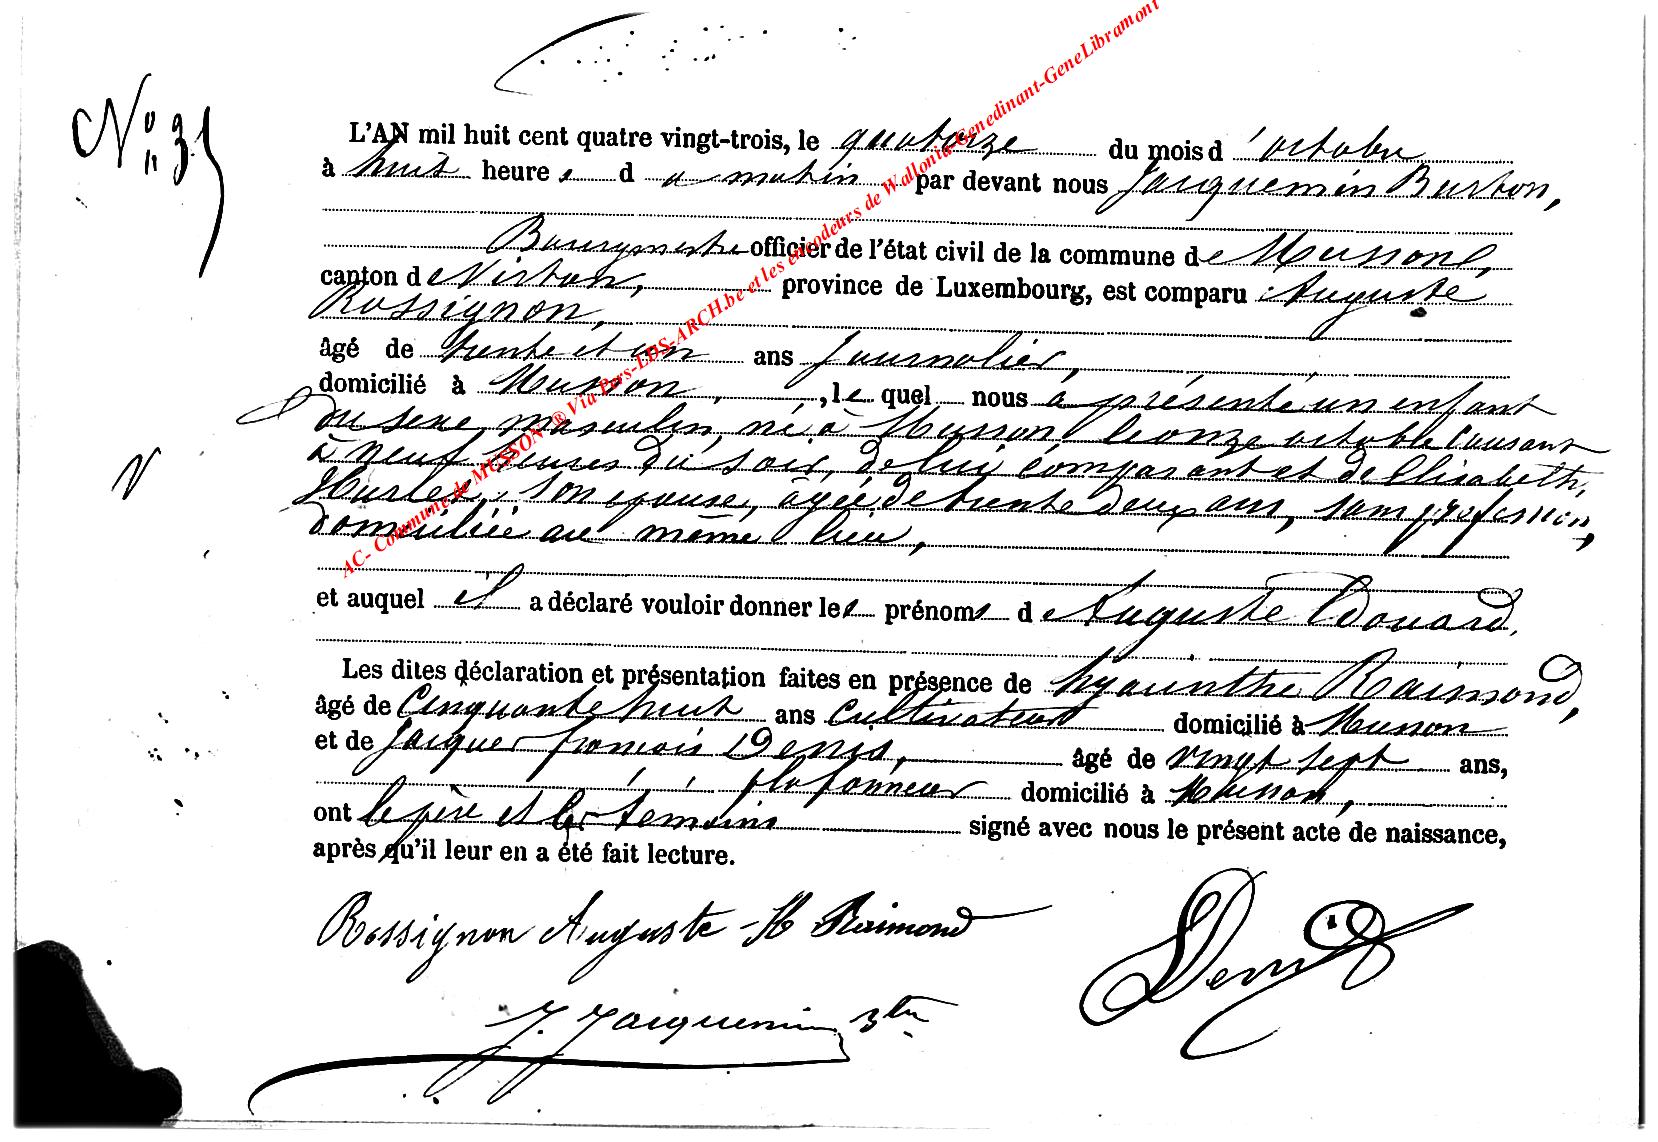 N° 35
L'AN mil huit cent quatre vingt-trois, le quatorze du mois d'octobre
à huit heures du matin par devant nous Jacquemin Burton,
Bourgmestre officier de l'état civil de la commune de Musson,
canton de Virton, province de Luxembourg, est comparu Auguste
Rossignon,
âgé de trente et un ans journalier,
domicilié à Musson, , le quel nous a présenté un enfant
du sexe masculin, né à Musson le onze octobre courant
à neuf heures du soir, de lui comparant et de Elisabeth
son épouse, âgée de trente deux ans, sans profession,
domiciliée au même lieu,
et auquel il a déclaré vouloir donner les prénoms de Auguste Edouard.
Les dites déclaration et présentation faites en présence de hyacinthe Raimond,
âgé de Cinquante huit ans Cultivateur domicilié à Musson
et de Jacques françois Denis, âgé de vingt sept ans,
plafonneur domicilié à Musson,
ont le père et les témoins signé avec nous le présent acte de naissance,
après qu'il leur en a été fait lecture.
Rossignon Auguste H Raimond
Denis
J. Jacquemin Btn
AC- Commune de MUSSON ® Via Pers-LDS-ARCH.be et les encodeurs de Wallonia-Genedinant-GeneLibramont